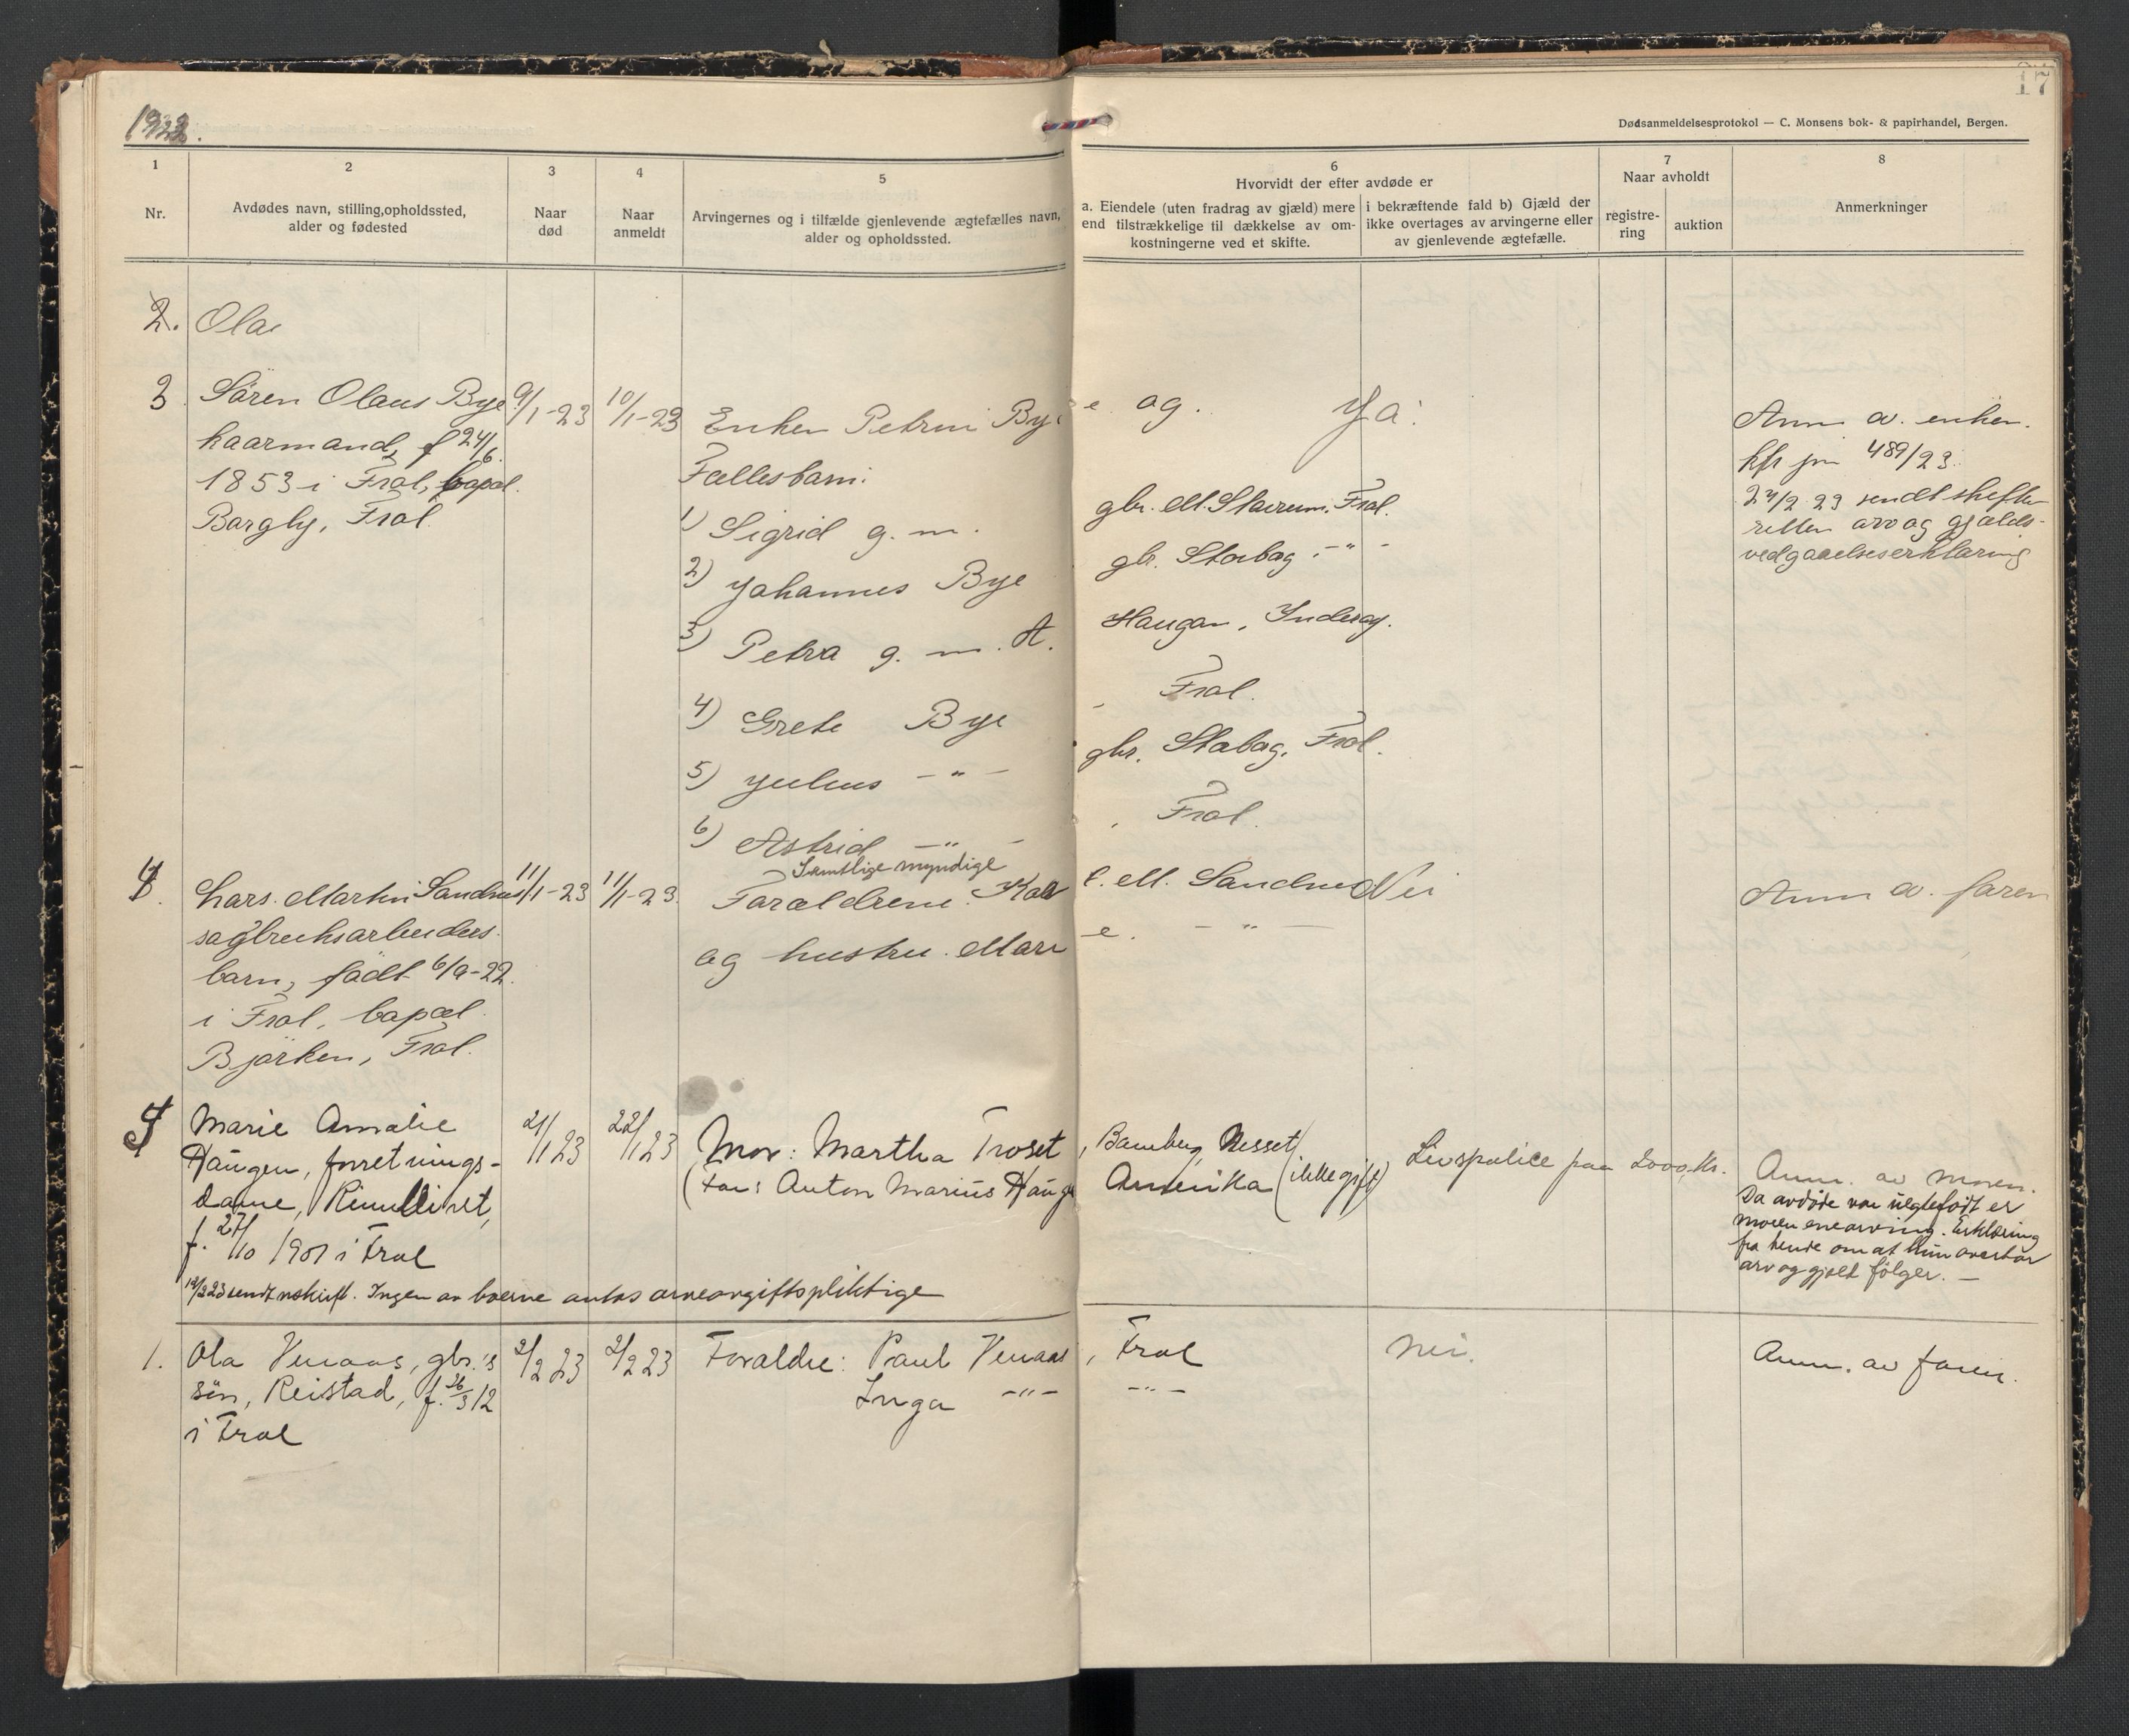 17
1922.
Dødsanmeldelsesprotokol — C. Monsens bok- & papirhandel, Bergen.
1
Nr.
2
Avdødes navn, stilling, opholdssted,
alder og fødested
3
Naar
død
4
Naar
anmeldt
5
Arvingernes og i tilfælde gjenlevende ægtefælles navn,
alder og opholdssted.
6
Hvorvidt der efter avdøde er
a. Eiendele (uten fradrag av gjæld) mere
end tilstrækkelige til dækkelse av om-
kostningerne ved et skifte.
i bekræftende fald b) Gjæld der
ikke overtages av arvingerne eller
av gjenlevende ægtefælle.
7
Naar avholdt
registre-
ring
auktion
8
Anmerkninger
2. Ola
3
Sören Olaus Bye
kaarmand, f 24/6
1853 i Frol, bopæl
Borgly, Frol.
9/1-23
10/1-23
Enken Petrine Bye og.
Fællesbarn:
1) Sigrid g. m. gbr. M. Stavrum, Frol.
2) Johannes Bye gbr. Frol. -"-
3) Petra g. m. A. Haugan, Inderøy.
4) Grete Bye, Frol.
5) Julius -"- gbr. Frol.
6) Astrid -"- , Frol.
Samtlige myndige
Ja.
Anm av. enken.
kfr jnr 489/23.
24/2 23 sendt skifte-
retten arv og gjælds-
vedgaaelseserklæring
4.
Lars Martin Sandnes
sagbruksarbeiders
barn, født 6/9-22.
i Frol, bopæl
Björken, Frol.
11/1-23
11/1-23.
Foraldrene: M. Sandnes
og hustru Marie. -"-
Nei
Anm av. faren
5
Marie Amalie
Haugen, forretnings-
dame,
f. 27/10 1901 i Frol
21/1 23
22/1 23
Mor: Martha Troset, Nesset
(Far: Anton Marius Haugen Amerika (ikke gift)
Livspolice paa 2000 kr.
Anm. av moren.
Da avdøde var uegtefødt er
moren enearving. Erklæring
fra hende om at hun overtar
arv og gjelt følger. —
sendt utskrift. Ingen av boerne antas arveavgiftspliktige
1.
Ola Venaas, gbr.'s
sön, Reistad, f. 26/3 12
i Frol
2/2 23
2/2 23
Foraldre: Paul Venaas, Frol
Inga -"- -"-
Nei.
Anm. av faren.